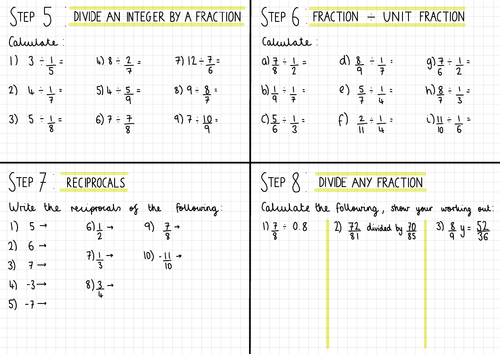 STEP 5 : DIVIDE AN INTEGER BY A FRACTION
Calculate :
1) 3 ÷ 1/5 =
4) 8 ÷ 2/7 =
7) 12 ÷ 7/6 =
2) 4 ÷ 1/7 =
5) 4 ÷ 5/9 =
8) 9 ÷ 8/7 =
3) 5 ÷ 1/8 =
6) 7 ÷ 7/8 =
9) 7 ÷ 10/9 =
STEP 6 : FRACTION ÷ UNIT FRACTION
Calculate :
a) 7/8 ÷ 1/2 =
d) 8/9 ÷ 1/7 =
g) 7/6 ÷ 1/2 =
b) 1/9 ÷ 1/7 =
e) 5/7 ÷ 1/4 =
h) 8/7 ÷ 1/3 =
c) 5/6 ÷ 1/3 =
f) 2/11 ÷ 1/4 =
i) 11/10 ÷ 1/6 =
STEP 7 : RECIPROCALS
Write the reciprocals of the following :
1) 5 →
6) 1/2 →
9) 7/8 →
2) 6 →
7) 1/3 →
10) -11/10 →
3) 7 →
8) 3/4 →
4) -3 →
5) -7 →
STEP 8 : DIVIDE ANY FRACTION
Calculate the following, show your working out:
1) 7/8 ÷ 0.8
2) 72/81 divided by 70/85
3) 8/9 y = 52/36